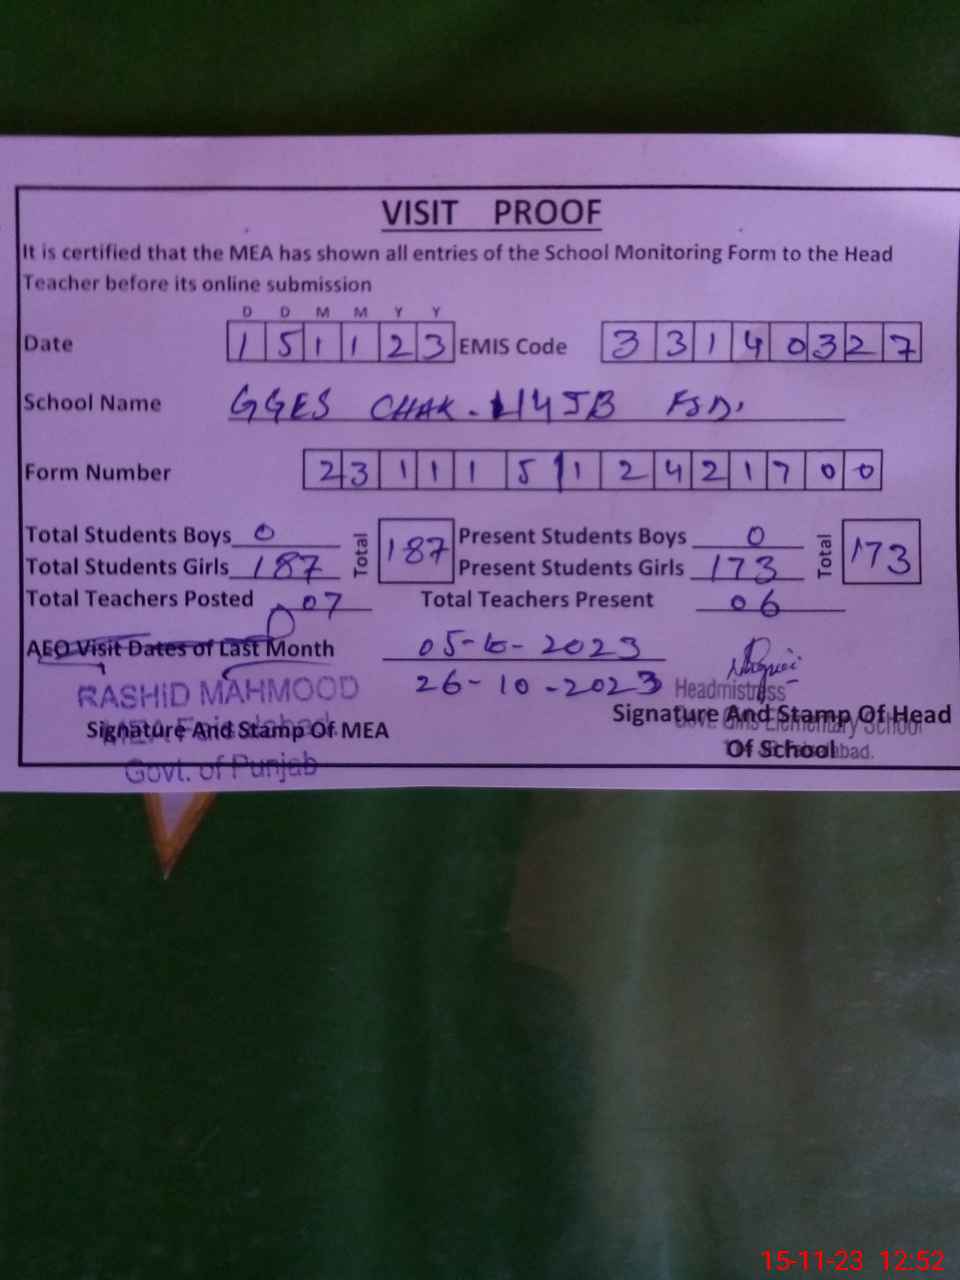 VISIT PROOF
It is certified that the MEA has shown all entries of the School Monitoring Form to the Head
Teacher before its online submission
D D M M Y Y
Date 1 5 1 1 2 3 EMIS Code 3 3 1 4 0 3 2 7
School Name GGES CHAK. 114 JB FSD.
Form Number 2 3 1 1 1 5 1 1 2 4 2 1 7 0 0
Total Students Boys 0 Total 187 Present Students Boys 0 Total 173
Total Students Girls 187 Present Students Girls 173
Total Teachers Posted 07 Total Teachers Present 06
AEO Visit Dates of Last Month 05-10-2023
26-10-2023
RASHID MAHMOOD Headmistress
Signature And Stamp Of MEA Signature And Stamp Of Head
Govt. Girls Elementary School
Of School
Govt. of Punjab
15-11-23 12:52